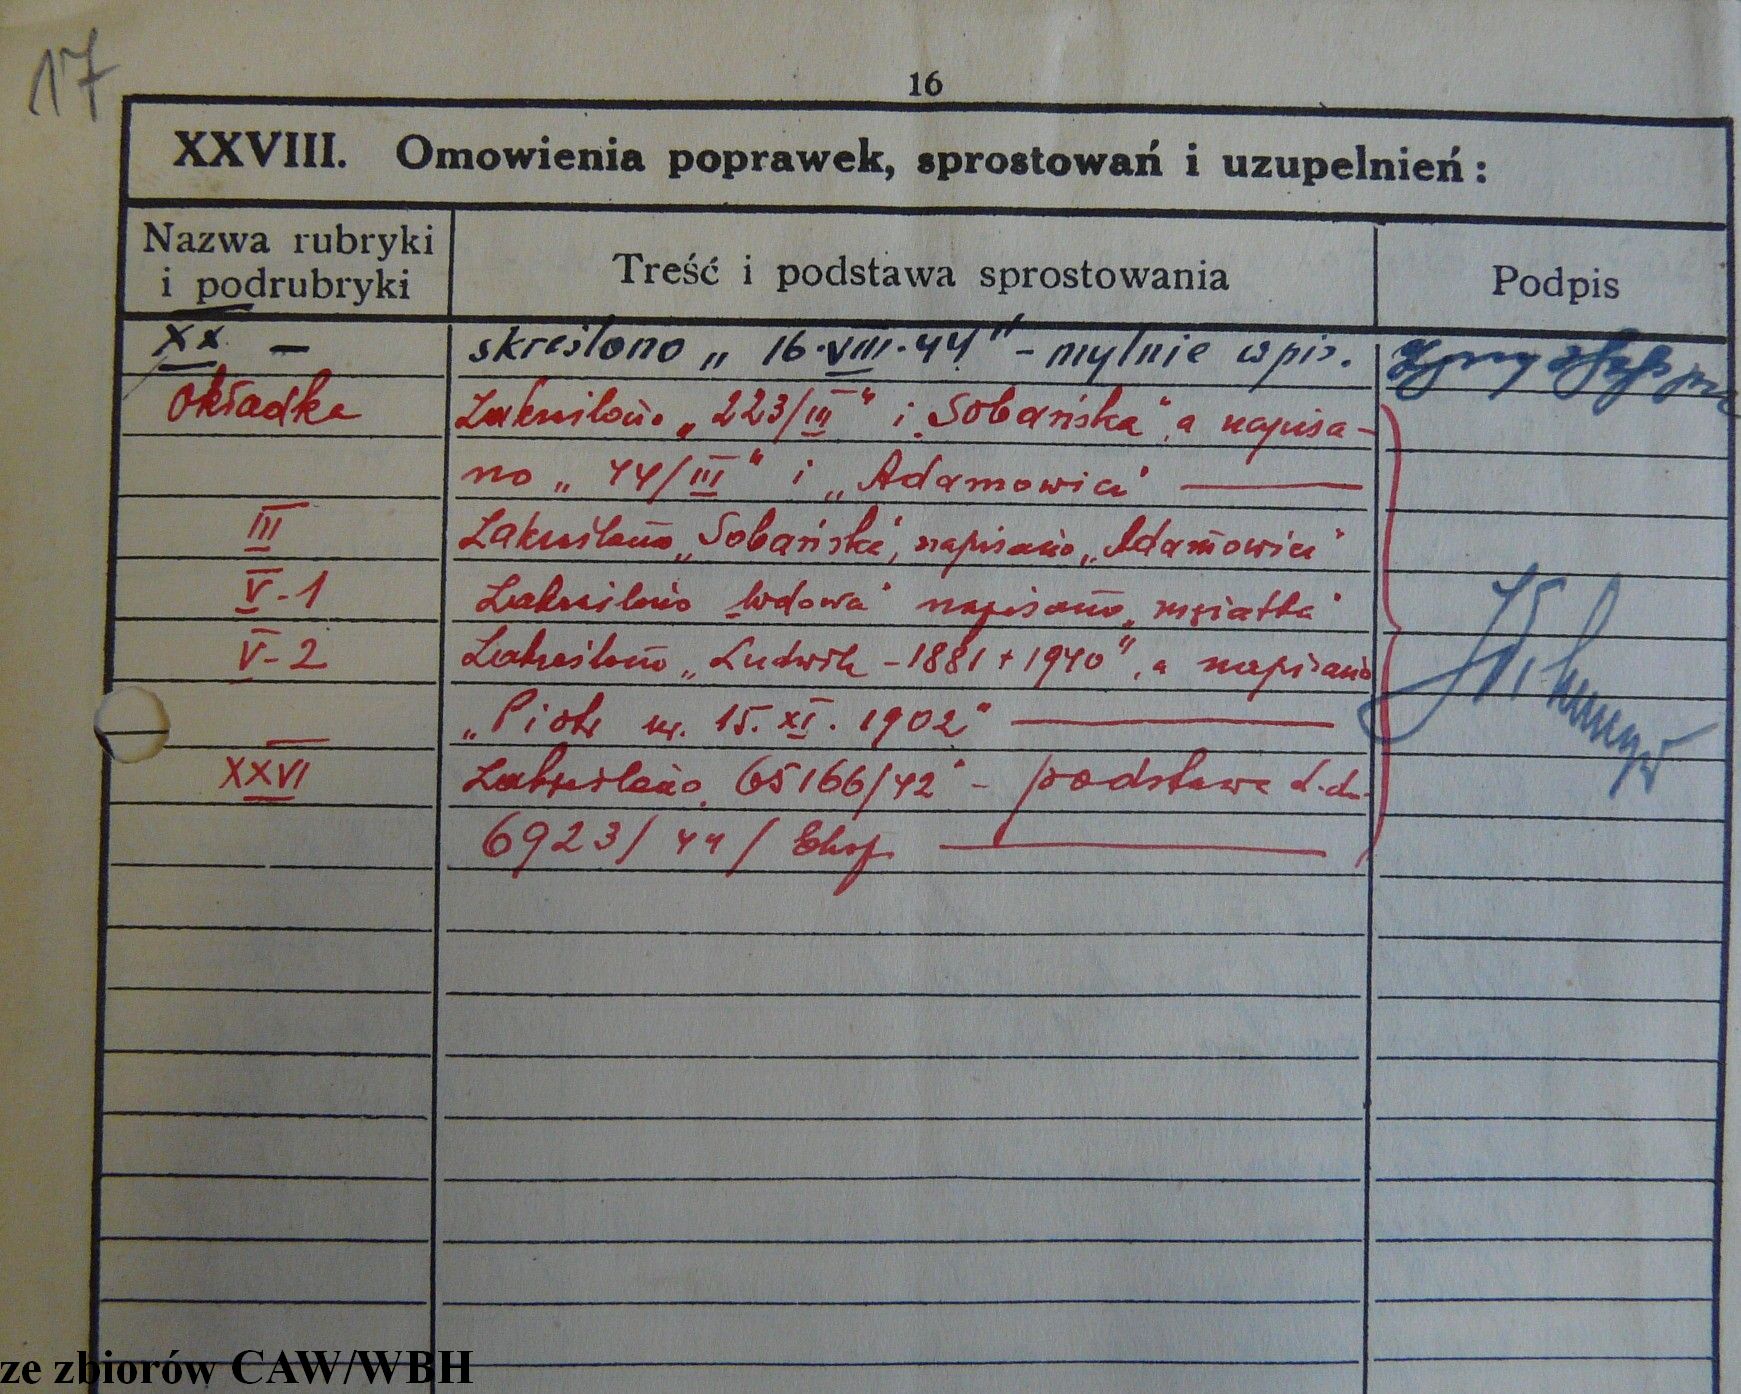 17
16
XXVIII. Omowienia poprawek, sprostowań i uzupelnień:
Nazwa rubryki i podrubryki
Treść i podstawa sprostowania
Podpis
XX — skreślono „16.VIII.44" – mylnie wpis.
okładka Zakreślono „223/III" i „Sobańska", a napisa-
no „44/III" i „Adamowicz" —
III Zakreślono „Sobańska", napisano „Adamowicz"
V-1 Zakreślono „wdowa" napisano „mężatka"
V-2 Zakreślono „Ludwik – 1881 + 1940", a napisano
„Piotr ur. 15.XI.1902" —
XXVI Zakreślono „65166/42" – podstawa L.dz.
6923/44/
ze zbiorów CAW/WBH